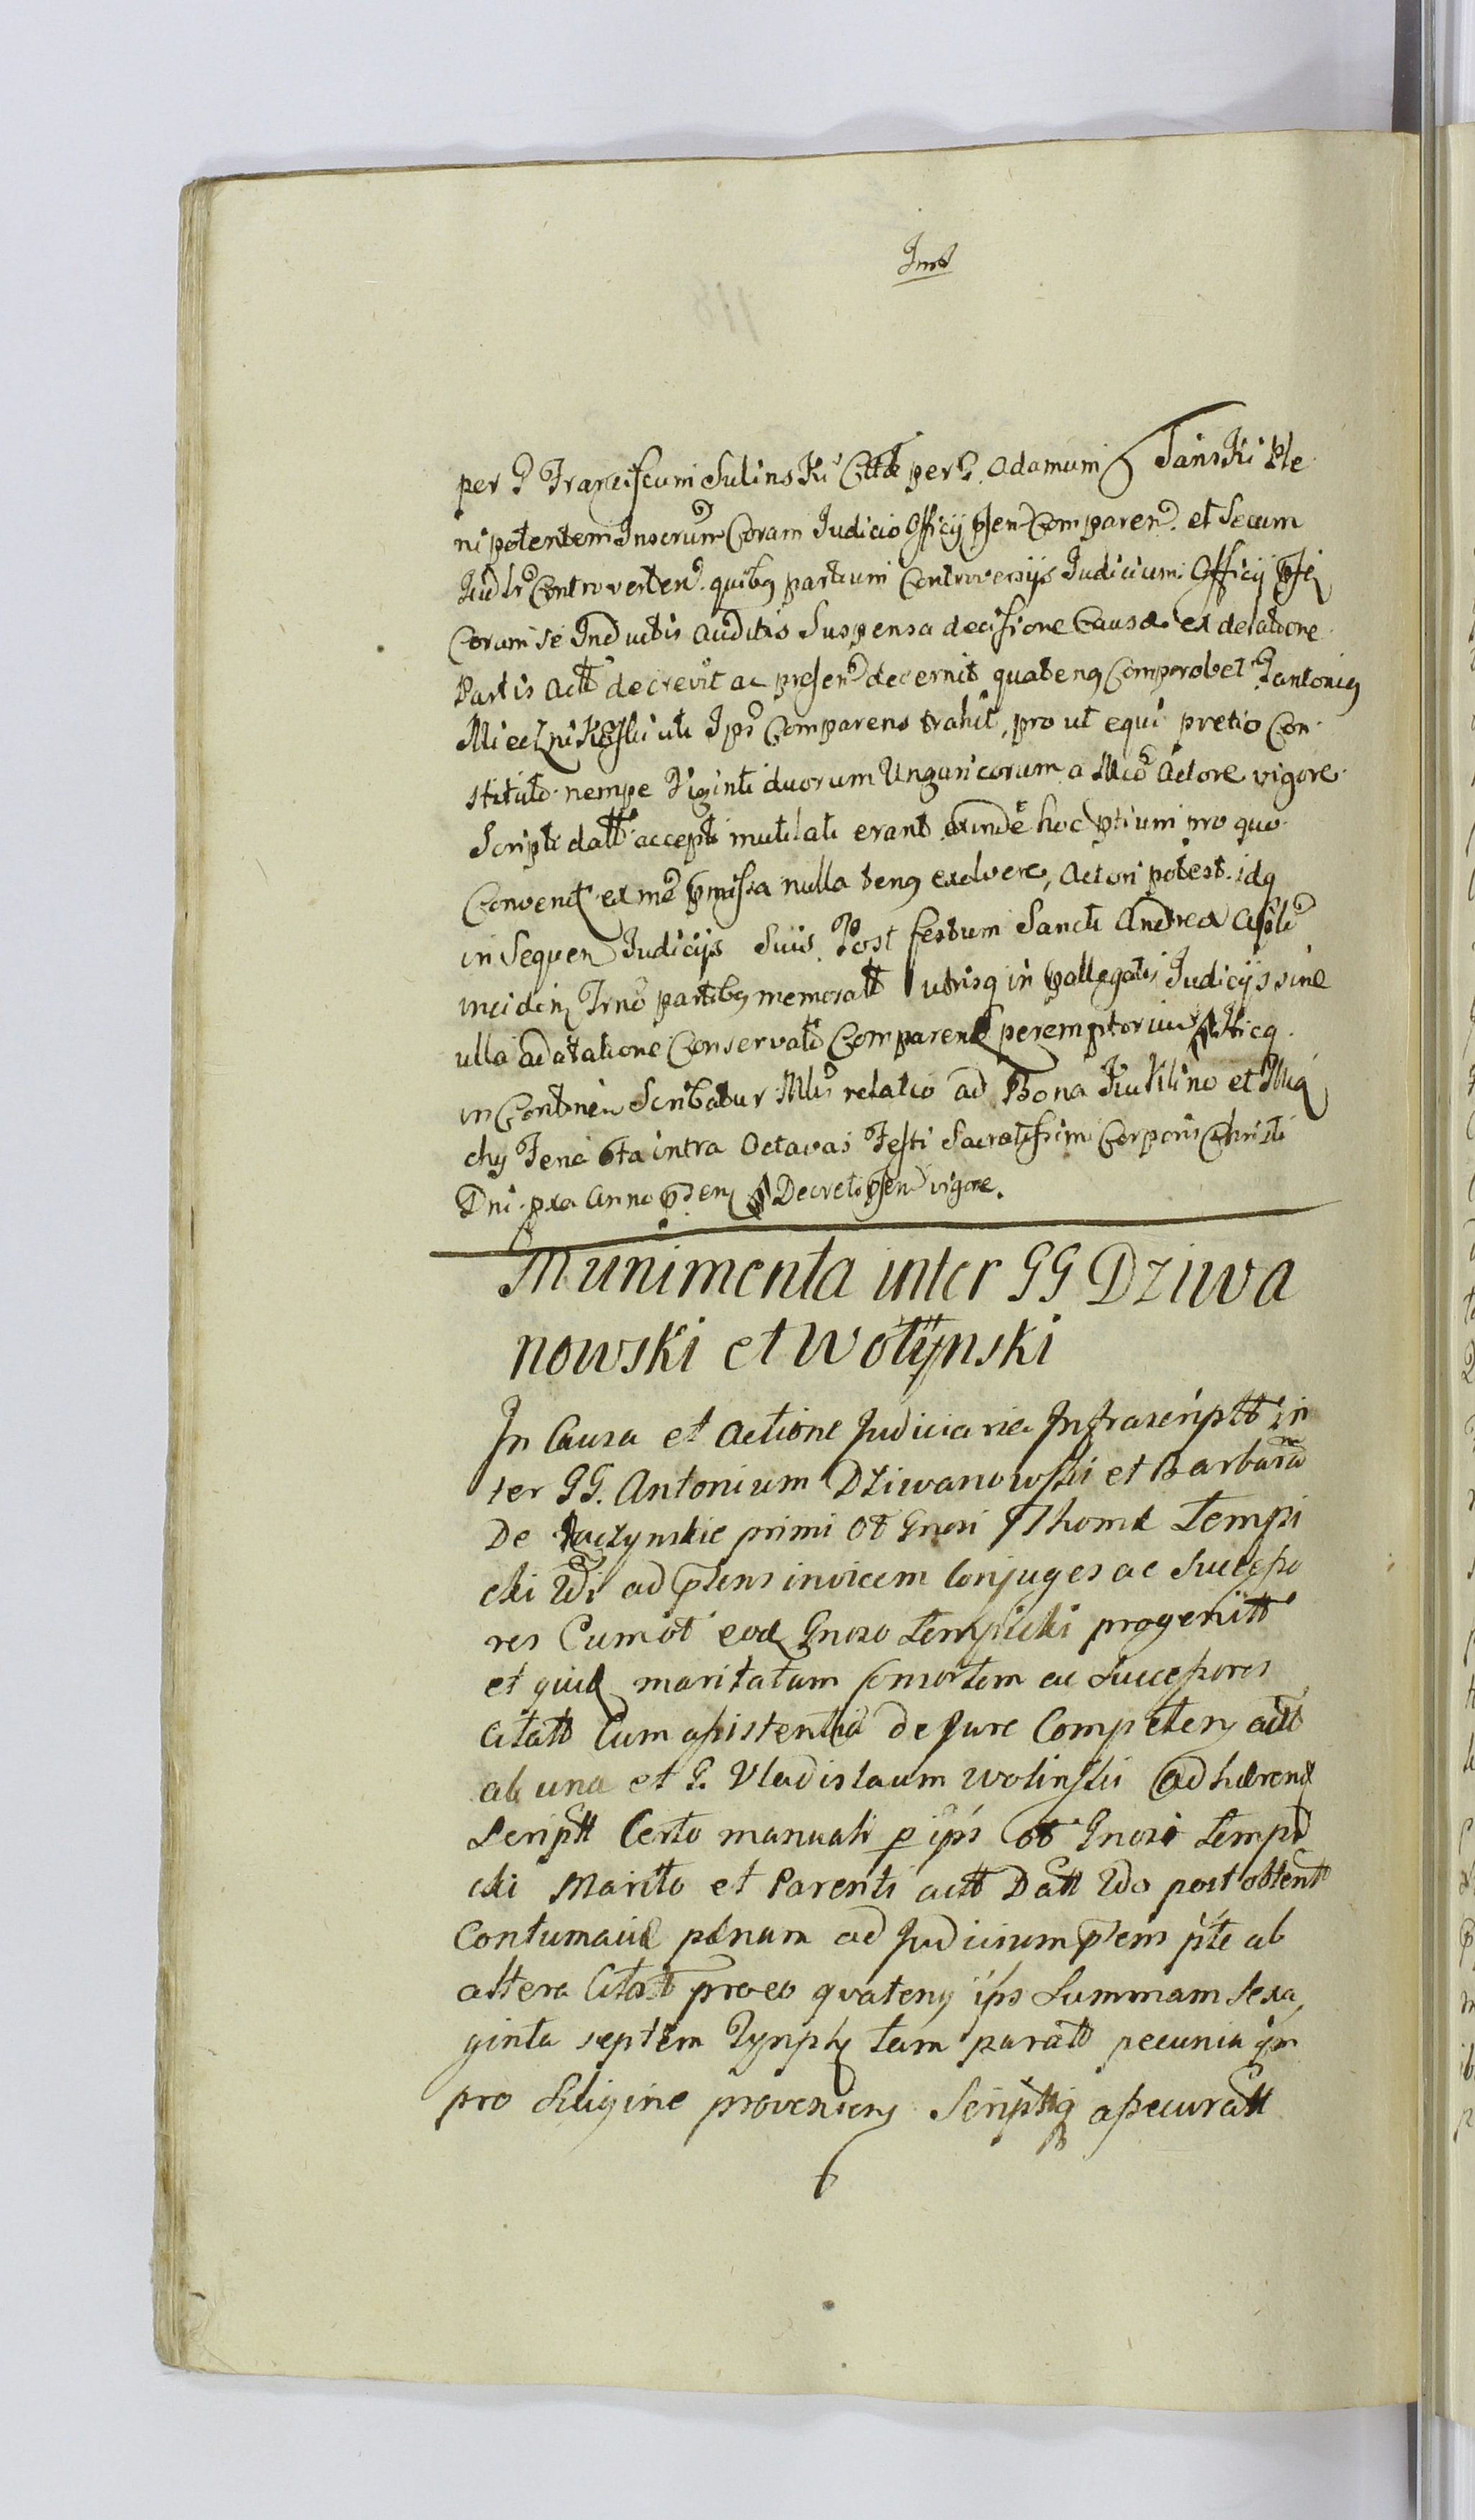 per G Franciscum Sulinski Citt per G. Adamum Janski Ple
nipotentem Inscrum Coram Judicio Officij psen Comparen. et Secum
Judlr Controverten. quibq partium Controversijs Judicium Officij
Coram se Inductis auditis Suspensa decisione Causæ ex delatione
Partis Actt decrevit ac presen decernit quatenq Comprobet G antoniq
uti Ips Comparens trahit, pro ut equi pretio Con
stituto nempe Viginti duorum Ungaricorum a Mco Actore vigore
Scripti datt accepti mutilati erant exinde hoc ptium pro quo
Convent ex pmissa nulla tenq exolvere, Actori potest idq
in Sequen Judicijs Suis Post festum Sancti Andreæ Apli
inciden Trno partibq memoratt utrisq in pallegatis Judicijs sine
ulla adcitatione Conservato Comparend peremptorium
in Continen Scribatur Mlis relatio ad Bona
chy Feria 6ta intra Octavas Festi Sacratissimi Corporis Christi
Dni pxa Anno Decreti psen vigore.
Munimenta inter GG Dziwa
nowski et Wołÿnski
In Causa et Actione Judiciaria Infrascriptt in
ter GG. Antonium Dziwanowski et Barbara
De primi Ot Gnosi Thomæ Lempi
cki ad psens invicem Conjuges ac Successo
res Cum ot eod Gnoso Lempicki progenitt
et maritatam Consortem ac Successores
Citatt Cum assistentia de Jure Competen actt
ab una et G. Vladislaum Wolinski adhærend
Scriptt Certo manuali p ips ot Gnosi Lempi
cki Marito et Parenti actt Datt post obtent
Contumaciæ pænam ad Judicium psens pte ab
altera Citatt pro eo quatenq ips Summam Sexa
ginta septem Tynph tam paratt pecunia qm
pro Siligine provenien Scripttq assecuratt